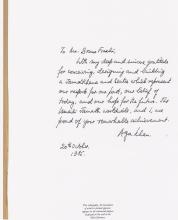 To Mr. Bruno Freschi,
With my deep and sincere gratitude
for conceiving, designing and building
a Jamatkhana and Centre which represent
our respect for our past, our belief of
today, and our hope for the future. The
Ismaili Jamats worldwide, and I, are
proud of your remarkable achievement.
Aga Khan.
20th
1985.